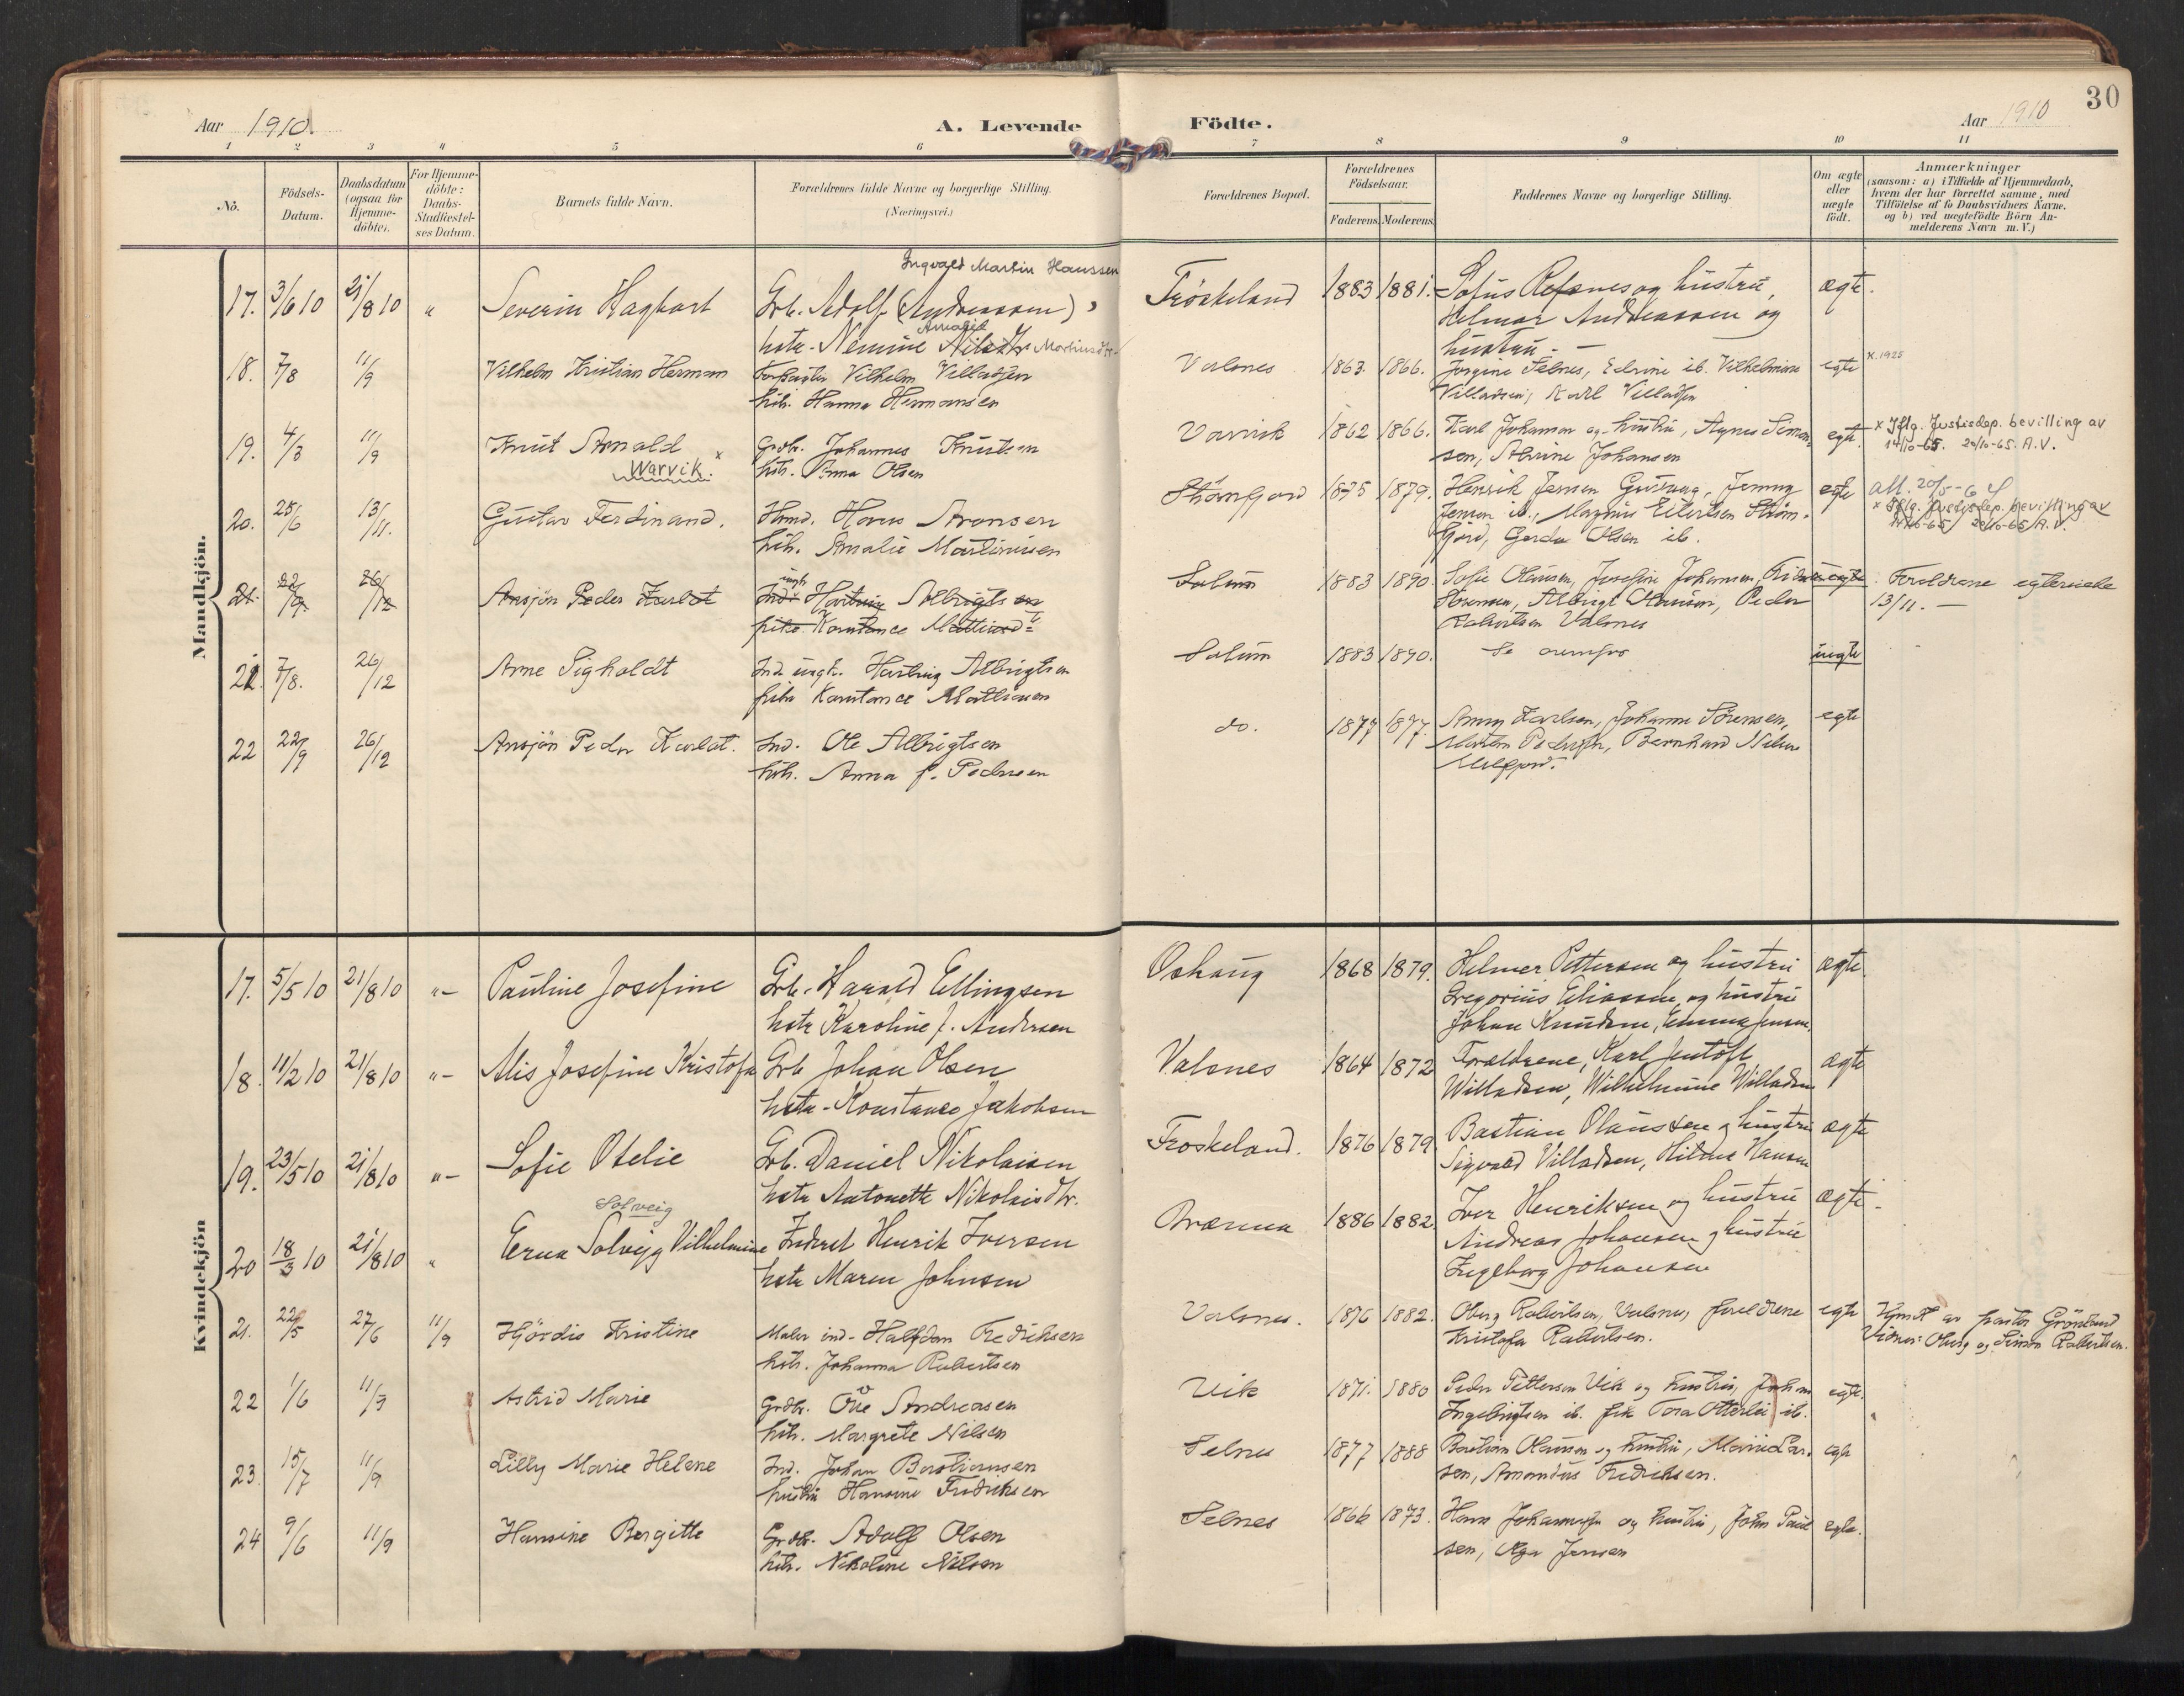 30
Aar 1910.
A. Levende Födte.
Aar 1910
1 2 3 4 5 6 7 8 9 10 11
No.
Födsels-
Datum.
Daabsdatum
(ogsaa for
Hjemme-
döbte).
For Hjemme-
döbte:
Daabs-
Stadfæstel-
ses Datum.
Barnets fulde Navn.
Forældrenes fulde Navne og borgerlige Stilling.
(Næringsvei.)
Forældrenes Bopæl.
Forældrenes
Födselsaar.
Faderens Moderens
Faddernes Navne og borgerlige Stilling.
Om ægte
eller
uægte
födt.
Anmærkninger
(saasom: a) i Tilfælde af Hjemmedaab,
hvem der har forrettet samme, med
Tilföielse af to Daabsvidners Navne.
og b) ved uægtefödte Börn An-
melderens Navn m.V.)
Mandkjön.
Ingvald Martin Hanssen
17. 3/6 10 21/8 10 " Severin Hagbart Grb. Adolf (Andreassen) Fröskeland 1883 1881. Sofus Refsnes og hustru, ægte.
Amalid
hstr. Nemine Nilsdtr Martinsdtr. Helmar Andreassen og
hustru. —
18. 7/8 11/9 Vilhelm Kristian Herman Forpagter Vilhelm Villadsen Valsnes 1863 1866. Jörgine Selnes, Edvine ib. Vilhelmine egte K. 1925
htr. Hanna Hermansen Villadsen, Karl Villadsen
19. 4/3 11/9 Knut Arnald x Grdbr. Johannes Knutsen Varvik 1862 1866. Karl Johansen og hustru, Agnes Simon- egte. x Iflg. Justisdep. bevilling av
Warvik. htr. Anna Olsen sen, Alvine Johansen 14/10-65. 20/10-65. A.V.
20. 25/6 13/11. Gustav Ferdinand. Hmd. Hans Aronsen Strömfjord 1875 1879. Henrik Jensen Jenny egte att. 20/5-6
htr. Amalie Martinusen Jensen ib., Magnus Eilertsen Ström- x Iflg. Justisdep. bevilling av
fjord, Gerda Olsen ib. 14/10-65 20/10-65 A.V.
21. 22/9. 26/12 Ansjön Peder Karlot Ind. ungk. Hartvig Albrigtsen Salum 1883 1890. Sofie Olausen, Josefine Johansen, uegte Foreldrene egteviede
pike Konstance Mattisd Sörensen, Albrigt Olausen, Peder 13/11. —
Robertsen Valsnes
21. 7/8. 26/12 Arne Sigholdt Ind. ungk. Hartvig Albrigtsen Salum 1883 1890. Se ovenfor uegte
pike Konstance Mathisen
22 22/9 26/12 Ansjön Peder Karlot. Ind. Ole Albrigtsen do. 1877 1877. Anny Karlsen, Johanna Sörensen, egte
htr. Anna f. Pedersen Martin Pedersen, Bernhard Nilsen
Melfjord.
Kvindekjön
17. 5/5 10 21/8 10 "- Pauline Josefine Grb. Harald Ellingsen Oshaug 1868 1879. Helmer Pettersen og hustru ægte
hstr Karoline f. Andersen Gregorius Eliassen og hustru
Johan Knudsen, Emma Jensen.
18. 11/2 10 21/8 10 "- Alis Josefine Kristofa Grb Johan Olsen Valsnes 1864 1872 Forældrene, Karl Jentoft ægte
hstr. Konstance Jakobsen Willadsen, Wilhelmine Willadsen
19. 23/5 10 21/8 10 "- Sofie Otelie Grb. Daniel Nikolaisen Froskeland. 1876 1879 Bastian Olaussen og hustru ægte
hstr Antonette Nikolaisdtr. Sigvald Villadsen, Hilda Hansen
Solveig
20 18/3 10 21/8 10 " Erna Solveig Vilhelmine Inderst Henrik Iversen Brænna 1886 1882. Iver Henriksen og hustru ægte.
hstr Maren Johnsen Andreas Johansen og hustru
Ingeborg Johansen
21. 22/5 27/6 11/9 Hjördis Kristine Maler ind. Halfdan Fredriksen Valsnes. 1876 1882. Oberg Robertsen, Valsnes, foreldrene egte Hjemdt av pastor Grönlund
htr. Johanna Robertsen Kristofa Robertsen. Vidner: Oberg og Simon Robertsen.
22 1/6 11/9 Astrid Marie Grdbr. Ove Andreasen Vik 1871. 1880 Peder Pettersen Vik og hustru, Johan egte.
htr. Margrete Nilsen Ingebrigtsen ib. pike Tora Otterlei ib.
23. 15/7 11/9 Lilly Marie Helene Ind. Johan Bastiansen Selnes 1877 1888 Bastian Olaussen og hustru, Marie Lar- egte
hustru Hansine Fredriksen sen, Amandus Fredriksen.
24 9/6 11/9 Hansine Bergitte Grdbr. Adolf Olsen Selnes 1866 1873. Hans Johannesen og hustru, John Paul- egte.
htr. Nikoline Nilsen sen, Jensen